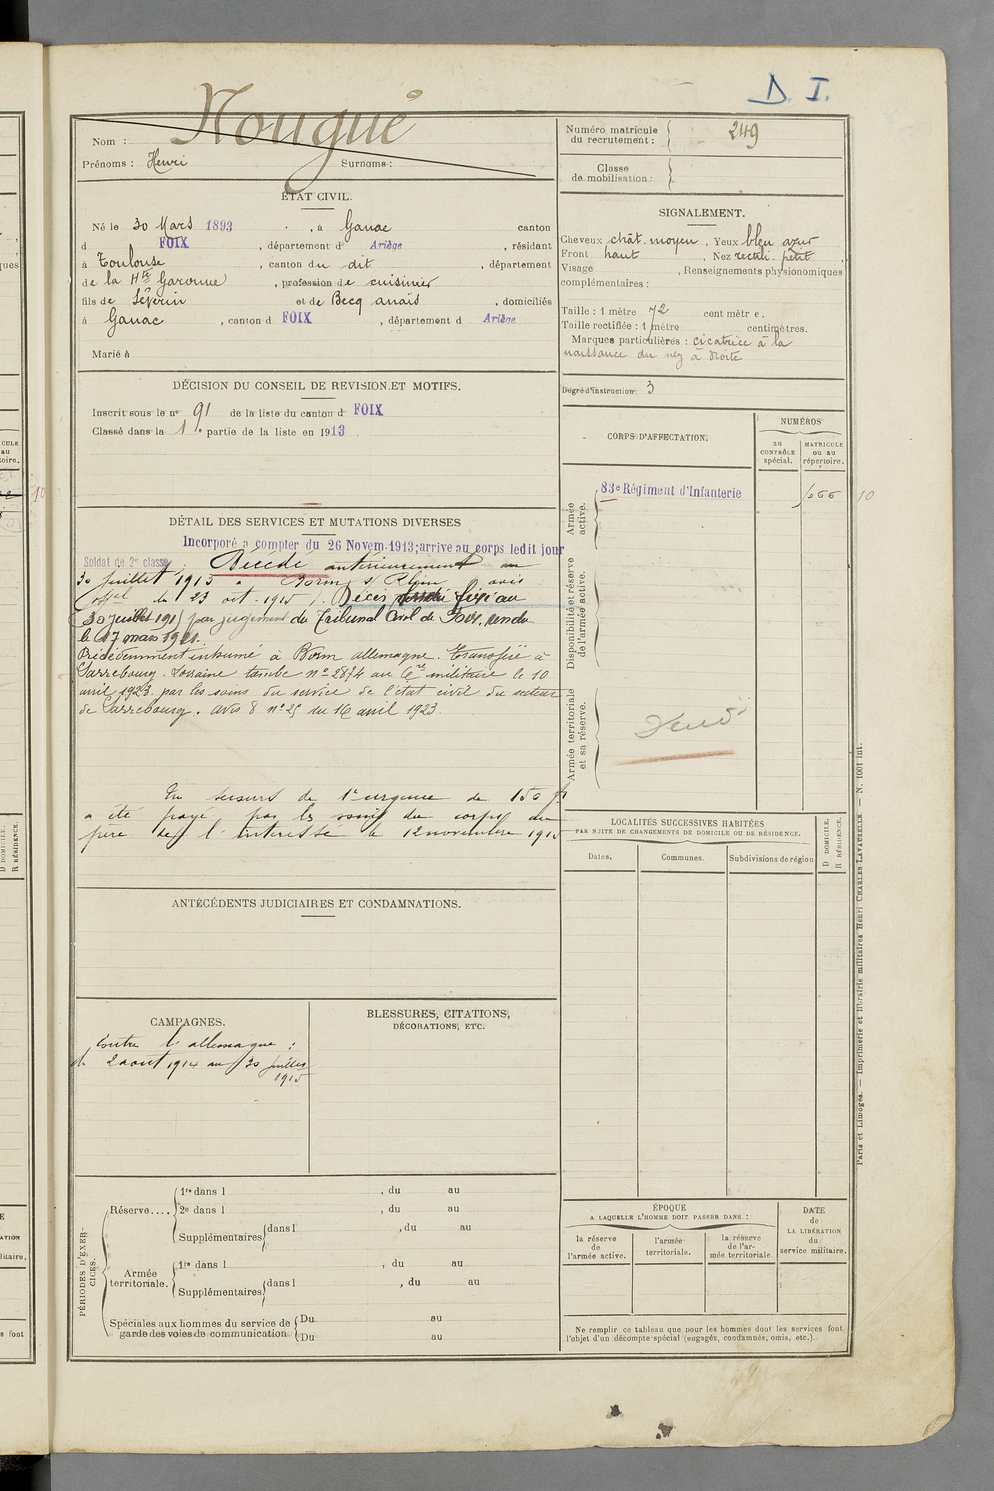 D. I.
Nougué
Nom :
Prénoms : Henri Surnoms :
Numéro matricule du recrutement : 249
Classe de mobilisation :
ÉTAT CIVIL.
Né le 30 Mars 1893 , à Ganac canton
d FOIX , département d Ariège , résidant
à Toulouse , canton du dit , département
de la Hte Garonne , profession de cuisinier
fils de Séverin et de Becq anaïs , domiciliés
à Ganac , canton d FOIX , département d Ariège
Marié à
SIGNALEMENT.
Cheveux chât. moyen , Yeux bleu azur
Front haut , Nez rectil. petit ,
Visage , Renseignements physionomiques
complémentaires :
Taille : 1 mètre 72 centimètre.
Taille rectifiée : 1 mètre centimètres.
Marques particulières : cicatrice à la
naissance du nez à droite
Degré d'instruction : 3
DÉCISION DU CONSEIL DE REVISION ET MOTIFS.
Inscrit sous le n° 91 de la liste du canton d FOIX
Classé dans la 1re partie de la liste en 1913 .
CORPS D'AFFECTATION.
NUMÉROS
au CONTRÔLE spécial.
MATRICULE ou au répertoire.
Armée active.
83e Régiment d'Infanterie
10
Disponibilité et réserve de l'armée active.
Armée territoriale et sa réserve.
DÉTAIL DES SERVICES ET MUTATIONS DIVERSES
Incorporé à compter du 26 Novem. 1913; arrivé au corps ledit jour
Soldat de 2e classe. Décédé antérieurement au
30 juillet 1915 à avis
offel du 23 oct. 1915. Décès fixé au
30 juillet 1915 par jugement du Tribunal Civil de Foix, rendu
le 17 mars 1921.
Précédemment inhumé à allemagne. Transféré à
Sarrebourg. Lorraine tombe n° au militaire le 10
avril 1923. par les soins du service de l'état civil du secteur
de Sarrebourg. Avis 8 n° 25 du 16 avril 1923.
Un secours de 1re urgence de 150 f
a été payé par les soins du corps au
père de l'intéressé le 12 novembre 1915
LOCALITÉS SUCCESSIVES HABITÉES
PAR SUITE DE CHANGEMENTS DE DOMICILE OU DE RÉSIDENCE.
Dates.
Communes.
Subdivisions de région
D DOMICILE.
R RÉSIDENCE.
ANTÉCÉDENTS JUDICIAIRES ET CONDAMNATIONS.
CAMPAGNES.
Contre l'allemagne :
du 2 août 1914 au 30 juillet
1915
BLESSURES, CITATIONS,
DÉCORATIONS, ETC.
PÉRIODES D'EXERCICES.
Réserve....
1re dans l , du au
2e dans l , du au
Supplémentaires dans l , du au
Armée territoriale.
1re dans l , du au
Supplémentaires dans l , du au
Spéciales aux hommes du service de garde des voies de communication
Du au
Du au
ÉPOQUE
A LAQUELLE L'HOMME DOIT PASSER DANS :
la réserve de l'armée active.
l'armée territoriale.
la réserve de l'armée territoriale
DATE de LA LIBÉRATION du service militaire.
Ne remplir ce tableau que pour les hommes dont les services font
l'objet d'un décompte spécial (engagés, condamnés, omis, etc.).
Paris et Limoges. — Imprimerie et librairie militaires Henri CHARLES-LAVAUZELLE — N. 1001 int.